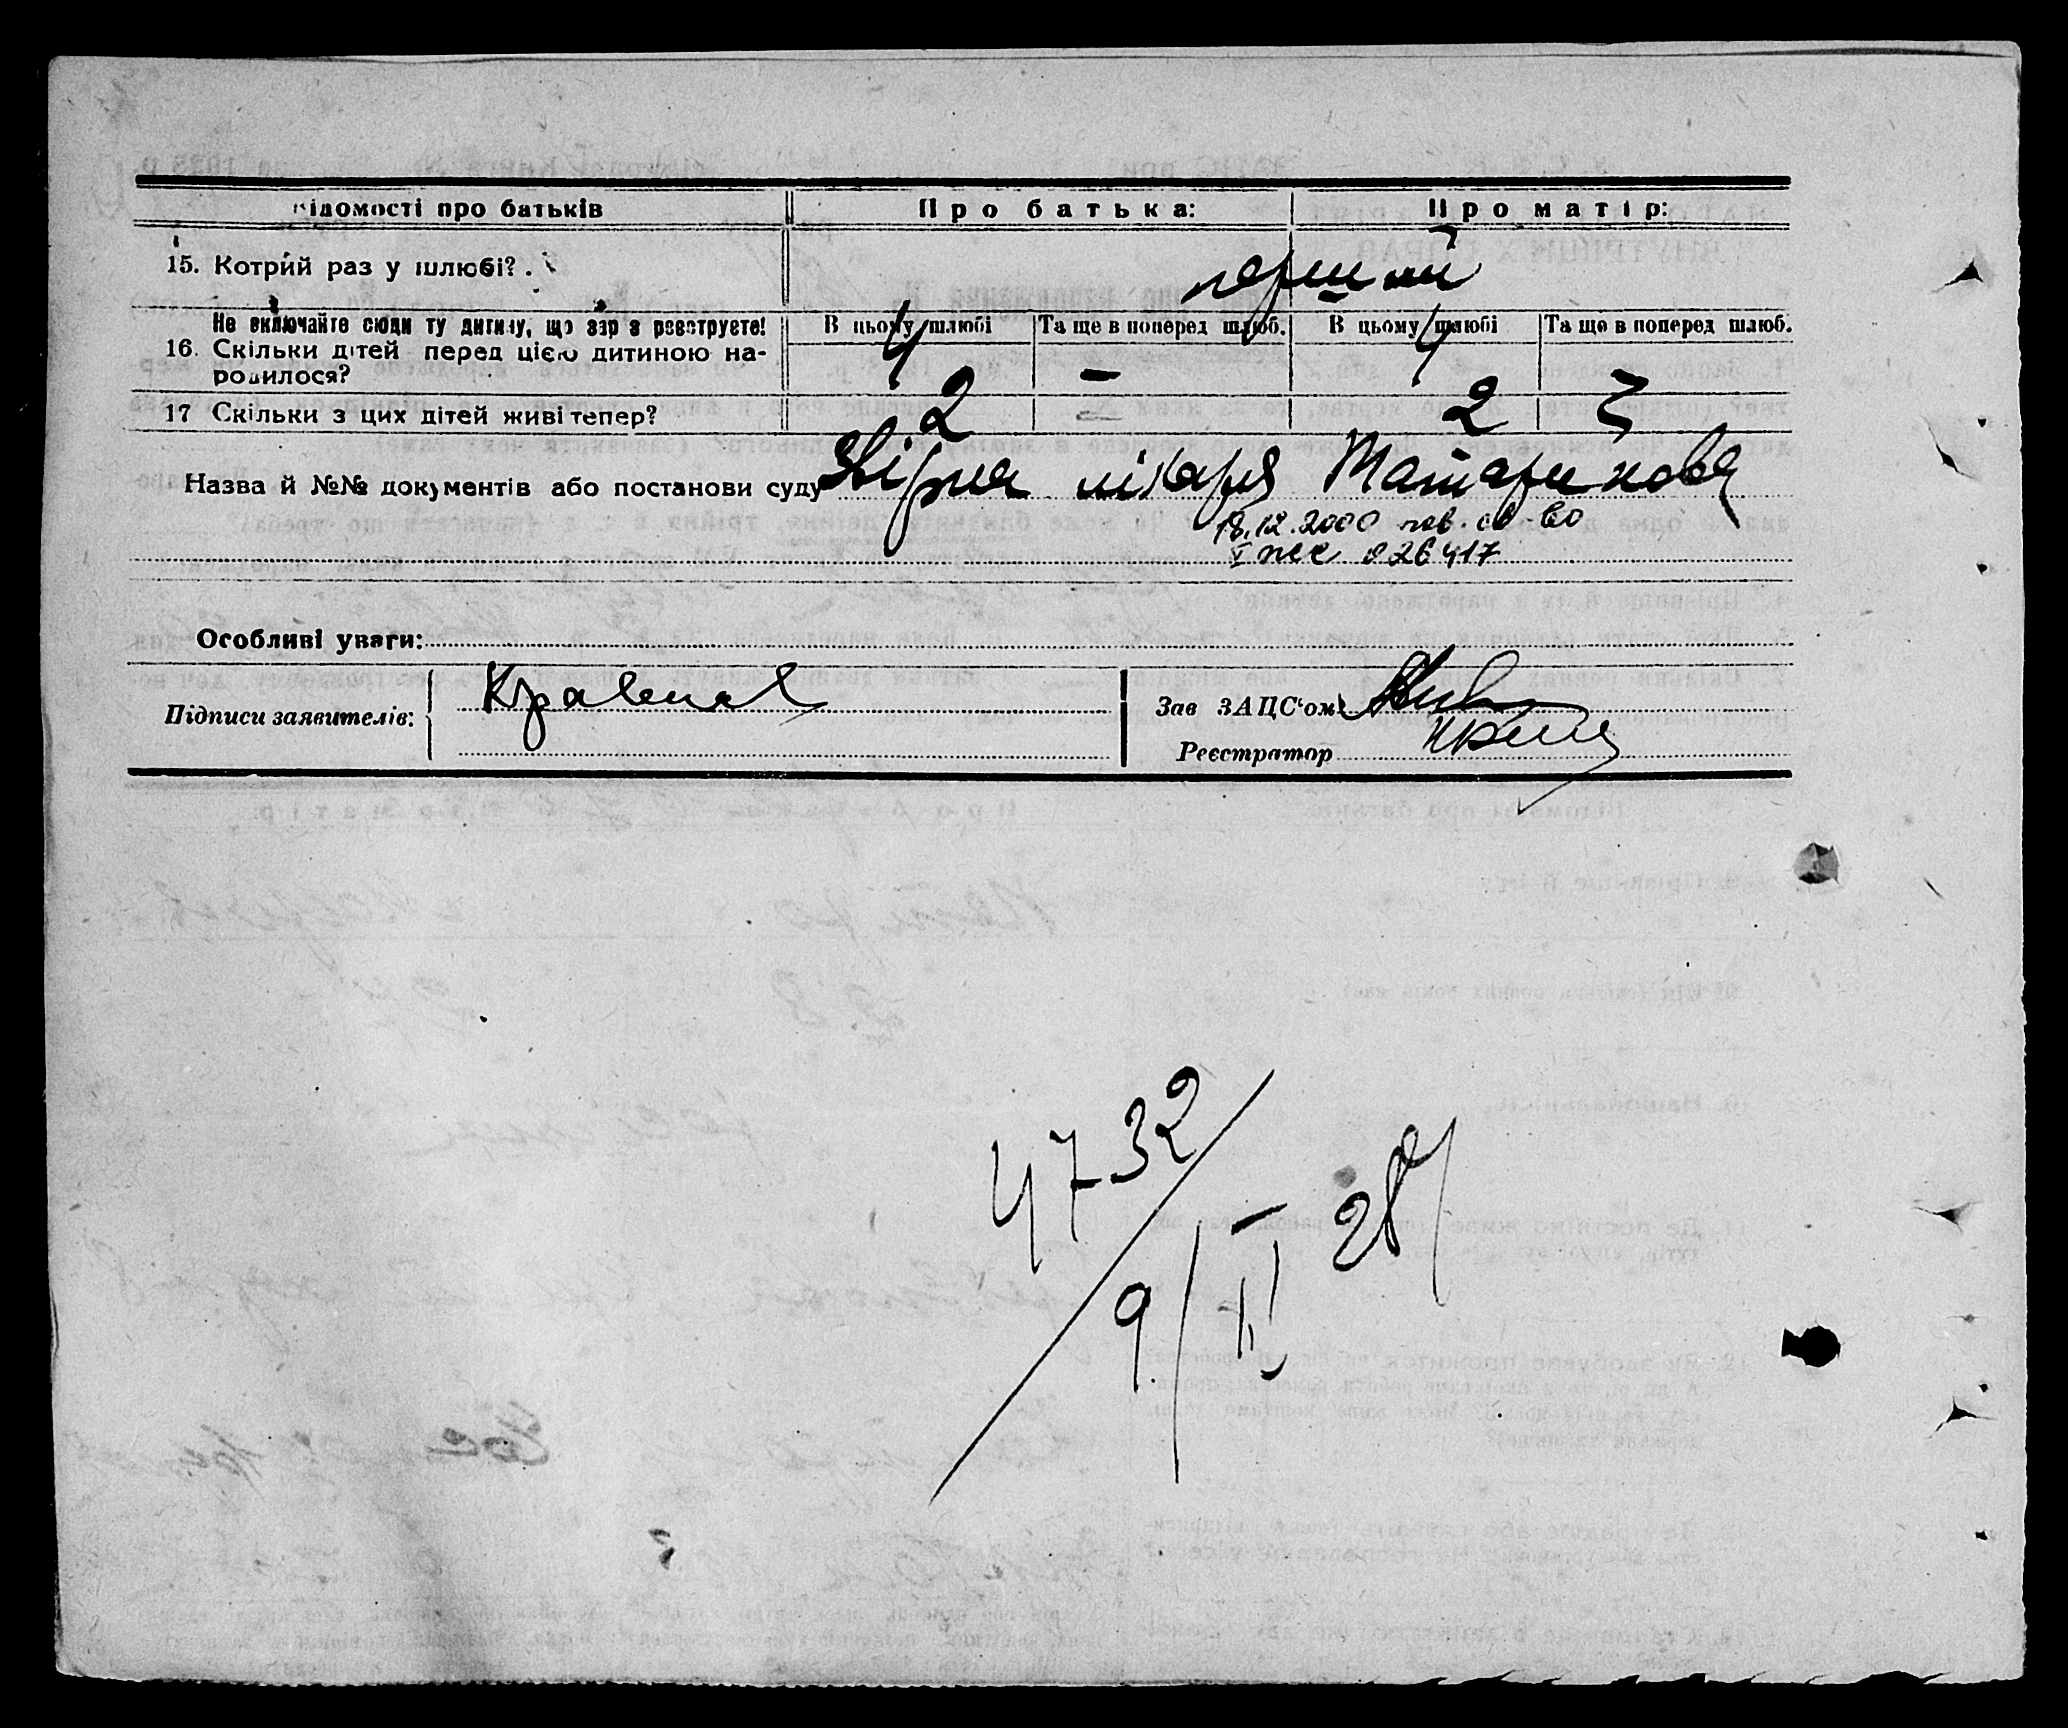 Відомості про батьків Про батька: Про матір:
15. Котрий раз у шлюбі? перший
Не включайте сюди ту дитину, що зараз реєструєте!
16. Скільки дітей перед цією дитиною народилося?
В цьому шлюбі Та ще в поперед шлюб. В цьому шлюбі Та ще в поперед шлюб.
4 — 4
17 Скільки з цих дітей живі тепер? 2 — 2
Назва й №№ документів або постанови суду лікаря Татаринова
18.12.2000 пов. св-во
026417
Особливі уваги:
Підписи заявителів:
Зав ЗАЦС'ом
Реєстратор
4732
9/II 28